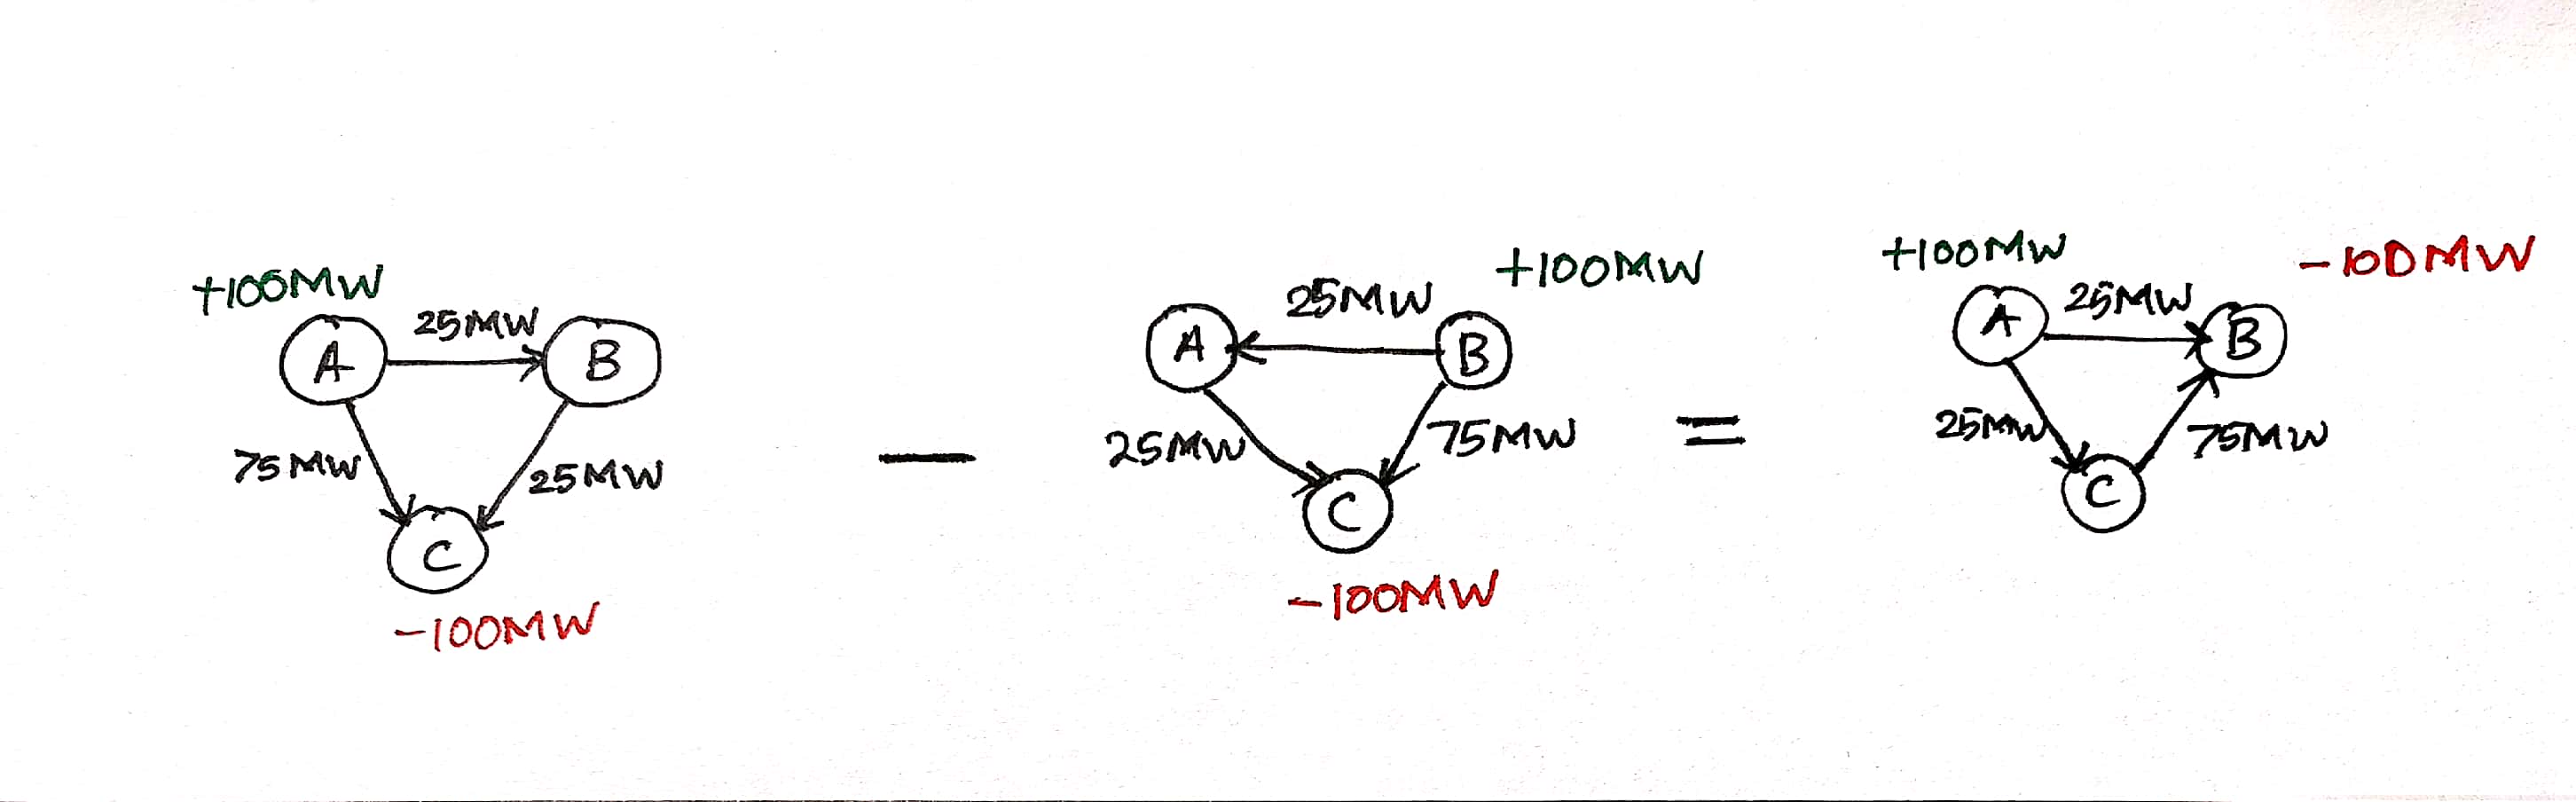 +100MW
25MW
A
B
75MW
25MW
C
-100MW
−
+100MW
25MW
A
B
25MW
75MW
C
-100MW
=
+100MW
-100MW
25MW
A
B
25MW
75MW
C